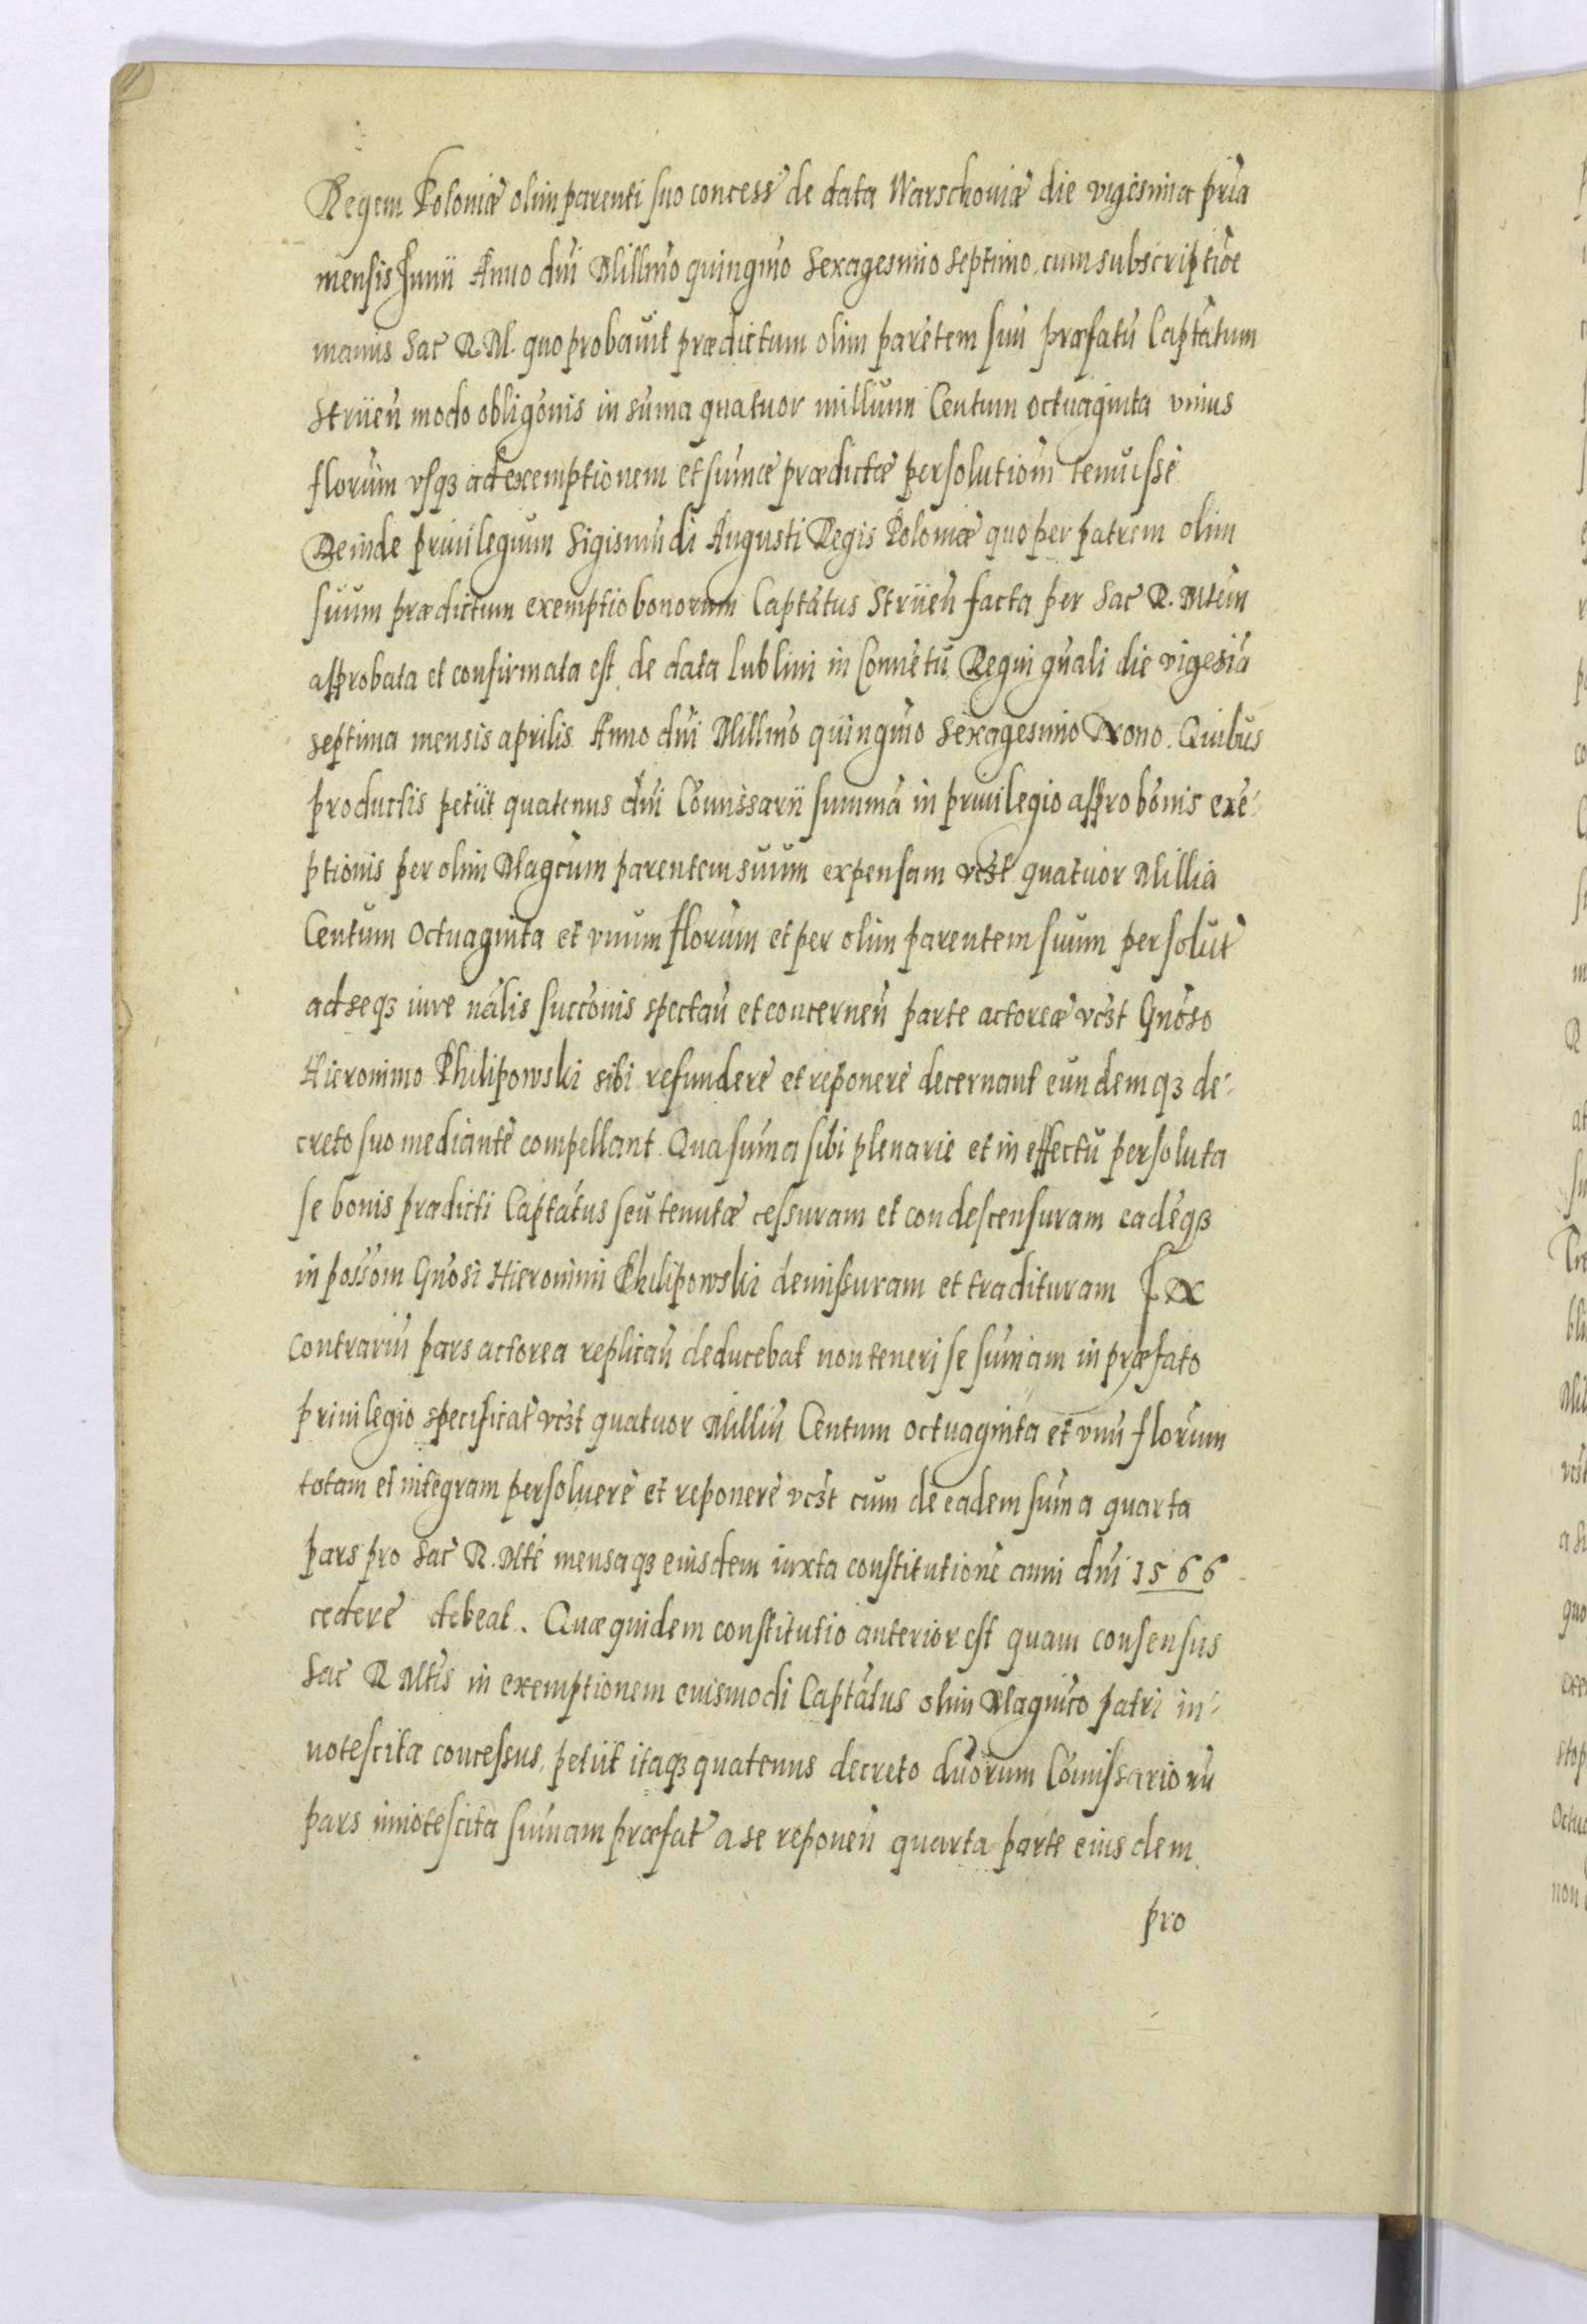 Regem Poloniæ olim parenti suo concess de data Warschoviæ die vigesima pria
mensis Junii Anno dni Millmo quingmo Sexagesimo septimo, cum subscriptioe
manus Sac R. M. quo probavit prædictum olim paretem suu præfatu Captatum
Striien modo obligonis in suma quatuor millium Centum octuaginta unius
florum usq3 ad exemptionem et sumæ prædictæ persolutiom tenuisse
Deinde privilegium Sigismudi Augusti Regis Poloniæ quo per patrem olim
suum prædictum exemptio bonorum Captatus Striien facta per Sac R. Mtem
approbata et confirmata est, de data Lublini in Convetu Regni gnali die vigesia
septima mensis aprilis Anno dni Millmo quingmo Sexagesimo Nono. Quibus
productis petiit quatenus dni Comissarii summa in privilegio approbonis exe-
ptionis per olim Magcum parentem suum expensam vcst quatuor Millia
Centum Octuaginta et vnum florum et per olim parentem suum persolut
ad seq3 iure nalis succonis spectan et concernen parte actorea vcst Gnoso
Hieronimo Philipowski sibi refundere et reponere decernant eundemq3 de-
creto suo mediante compellant. Qua suma sibi plenarie et in effectu persoluta
se bonis prædicti Captatus seu tenutæ cessuram et condescensuram eadeq3
in possom Gnosi Hieronimi Philipowski demissuram et tradituram Ex
contrariu pars actorea replican deducebat non teneri se sumam in præfato
privilegio specificat vcst quatuor Milliu Centum octuaginta et vnu florum
totam et integram persoluere et reponere vcst cum de eadem suma quarta
pars pro Sac R. Mte mensaq3 eiusdem iuxta constitutione anni dni 1566
cedere debeat. Quæ quidem constitutio anterior est quam consensus
Sac R Mtis in exemptionem euismodi Captatus olim Magnico patri in-
notescitæ concessus, petiit itaq3 quatenus decreto dnorum Comissarioru
pars innotescita sumam præfat a se reponen quarta parte eiusdem
pro